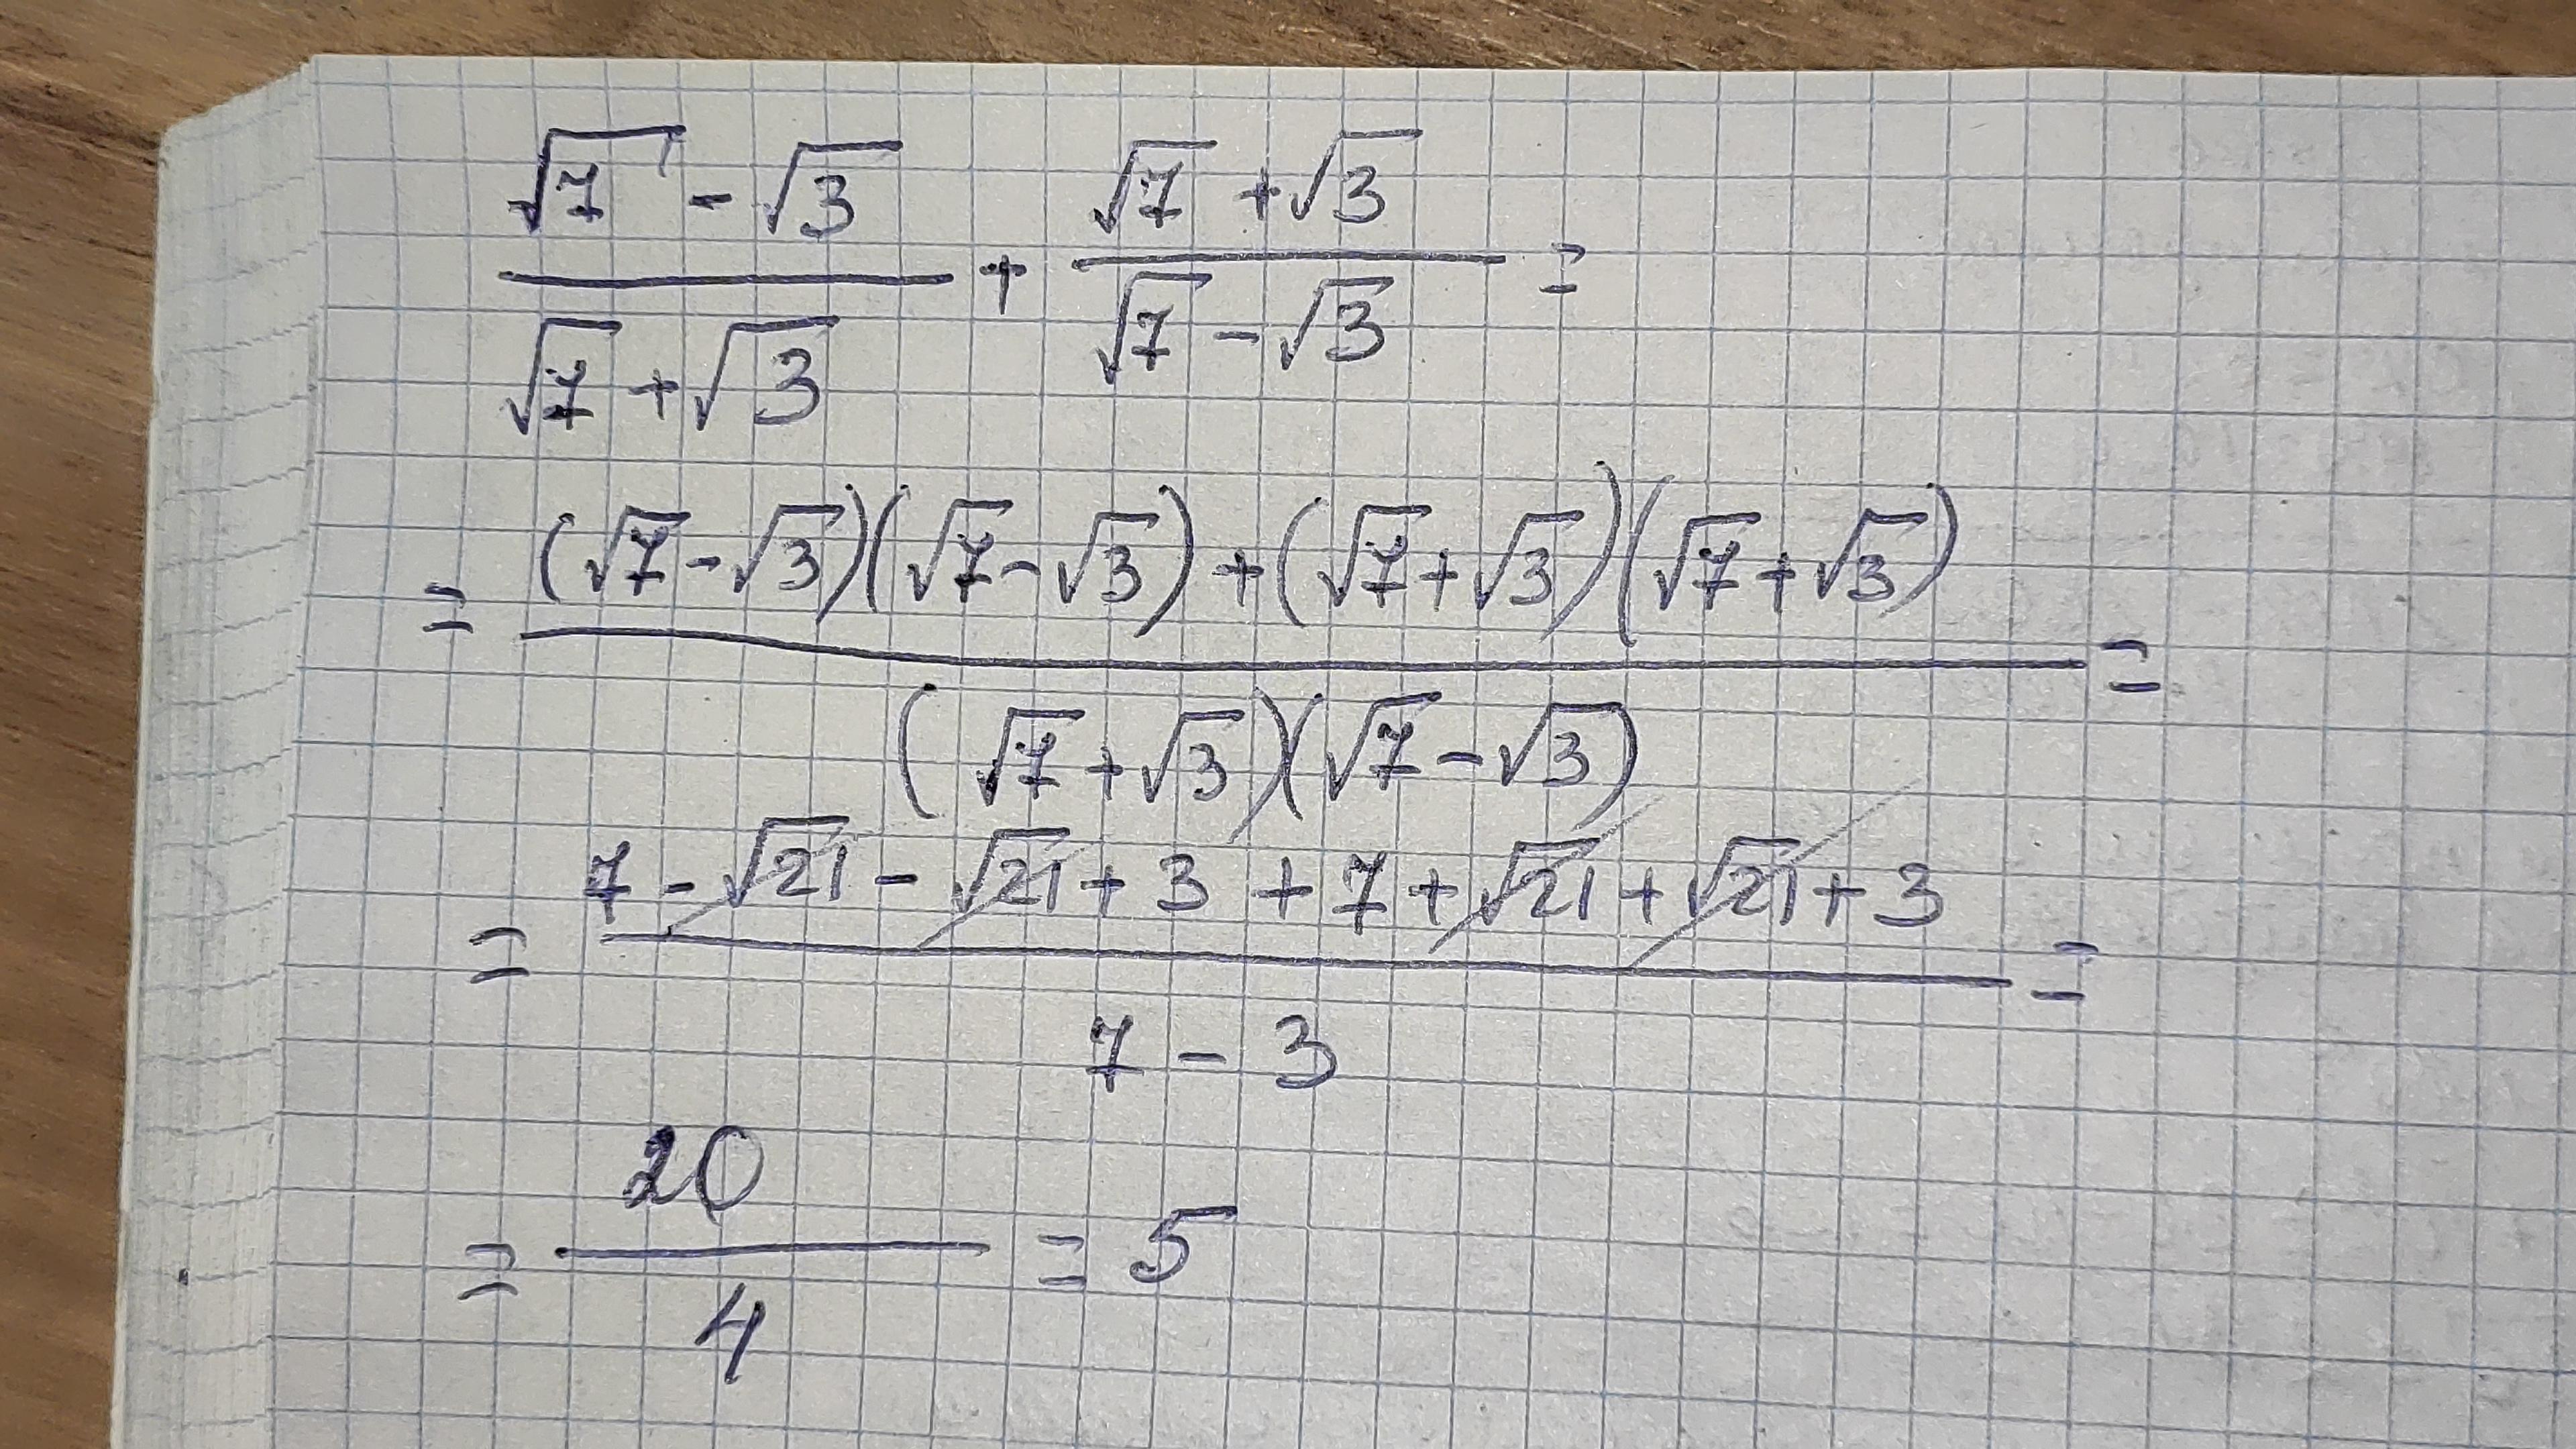 (√7 - √3)/(√7 + √3) + (√7 + √3)/(√7 - √3) =
= ((√7 - √3)(√7 - √3) + (√7 + √3)(√7 + √3))/((√7 + √3)(√7 - √3)) =
= (7 - √21 - √21 + 3 + 7 + √21 + √21 + 3)/(7 - 3) =
= 20/4 = 5